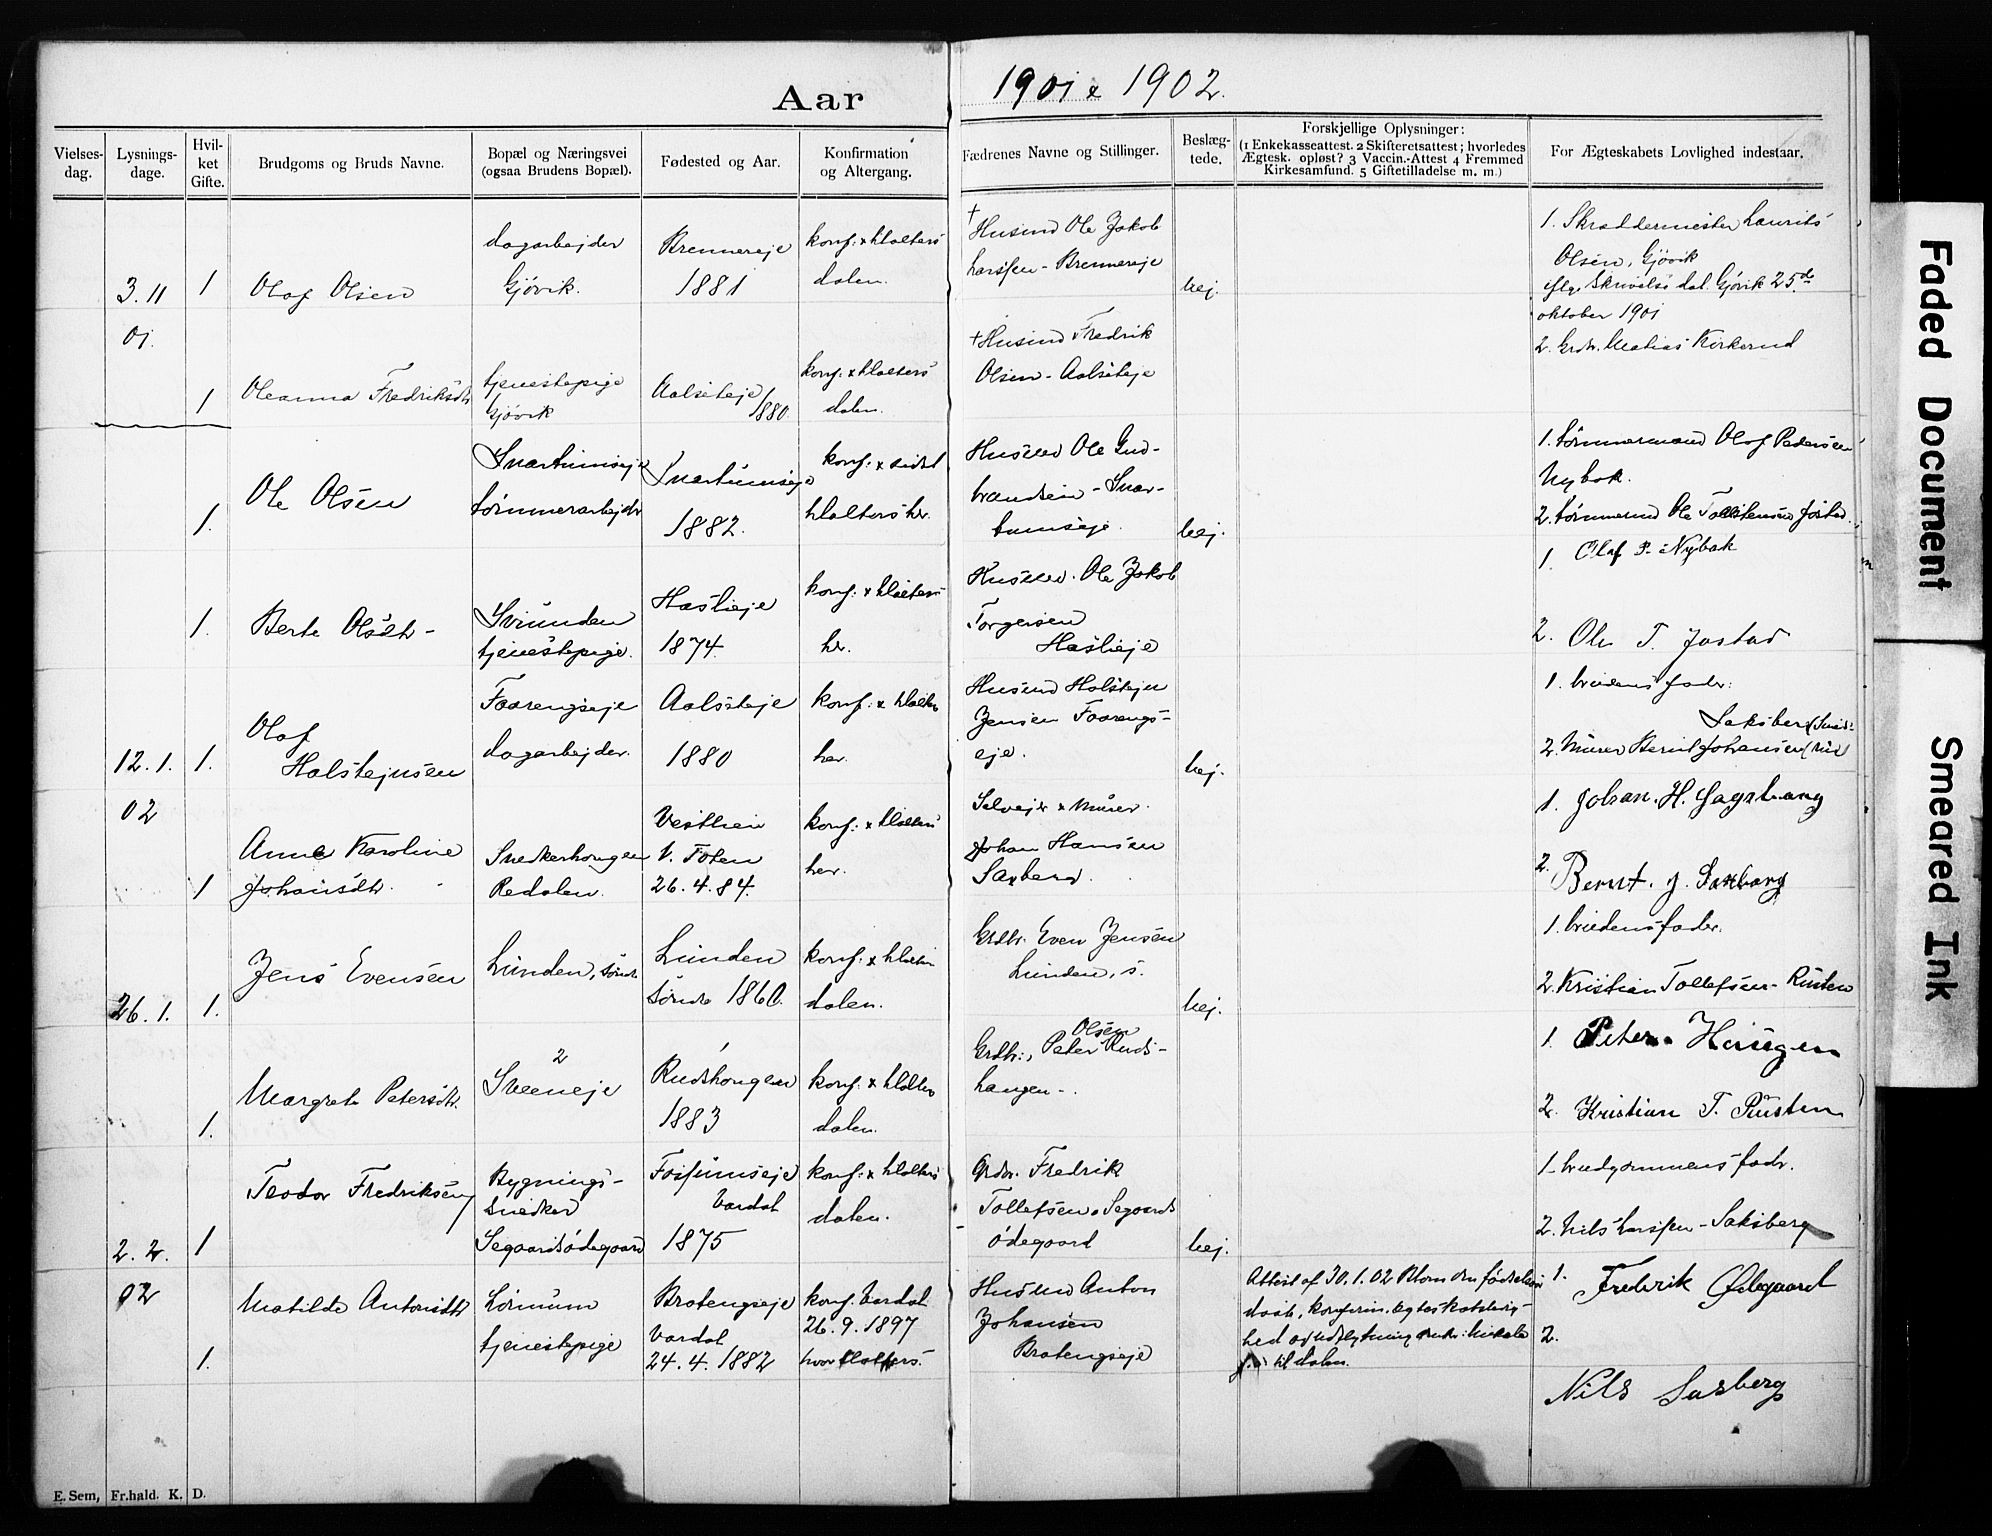 Aar
1901 & 1902.
Vielses-
dag.
Lysnings-
dage.
Hvil-
ket
Gifte.
Brudgoms og Bruds Navne.
Bopæl og Næringsvei
(ogsaa Brudens Bopæl).
Fødested og Aar.
Konfirmation
og Altergang.
Fædrenes Navne og Stillinger.
Beslæg-
tede.
Forskjellige Oplysninger:
(1 Enkekasseattest. 2 Skifteretsattest; hvorledes
Ægtesk. opløst? 3 Vaccin.-Attest 4 Fremmed
Kirkesamfund. 5 Giftetilladelse m. m.)
For Ægteskabets Lovlighed indestaar.
3.11
01.
1
Olaf Olsen
dagarbejder
Gjövik.
Brennereje
1881
dalen.
† Husmd Ole Jakob
Larsen - Brennereje
nej.
1. Skræddermester Laurits
Olsen, Gjövik
iflge Skrivelse dat. Gjövik 25de
oktober 1901
2. Grdbr. Matias Kirkerud
1
Oleanna Fredriksdtr
tjenestepige
Gjövik
Aalseteje
1880.
dalen.
† Husmd Fredrik
Olsen - Aalseteje
1.
Ole Olsen
Snartumseje
tömmerarbejdr
Snartumseje
1882.
konf. & sidst
her.
Husmd Ole Gud-
brandsen - Snar-
tumseje.
nej.
1. tömmermand Olof Pedersen
Nybak.
2. tömmermd Ole Tollefsen Jostad.
1. Olaf P. Nybak
1.
Berte Olsdtr -
tjenestepige.
Haslieje
1874.
her.
Husmd. Ole Jakob
Torgersen
Haslieje
2. Ole T. Jostad
12.1.
02
1.
Olaf
Holstejnsen
Faarengseje
dagarbejder.
Aalseteje
1880
her.
Husmd Holstejn
Jensen Faarengs-
eje.
nej.
1. brudens fader:
2. Murer Bernt Johansen
Saksberg
1. Johan. H. Sagsberg
1
Anne Karoline
Johansdtr.
Snekkerhaugen
Redalen.
V. Toten
26.4.84.
her.
Selvejer & murer.
Johan Hansen
Saxberg.
2. Bernt. J. Saxberg
26.1.
1.
Jens Evensen
Lunden, söndr
Lunden
söndr 1860.
dalen.
Grdbr. Even Jensen
Lunden, s.
nej.
1. brudens fader.
2. Kristian Tollefsen - Rusten
1.
Margrete Petersdtr.
Sveeneje
Rudshaugen
1883
dalen.
Grdbr., Peter Olsen Ruds-
haugen -.
1. Peter Haugen
2. Kristian T. Rusten
2.2.
02
1
Teodor Fredriksen
Bygnings-
snedker
Segaardsödegaard
Fossumseje
Vardal
1875
dalen.
Grdbr. Fredrik
Tollefsen. Segaards
- ödegaard
nej.
1. brudgommens fader.
2. Nils Larssen - Saksberg
1.
Matilde Antonsdtr
Lönnum
tjenestepige
Bratengseje
Vardal
24.4.1882
konf. Vardal
26.9.1897
Husmd Anton
Johansen
Bratengseje
Attest af 30.1.02
til dalen.
1. Frederik Ødegaard
2.
Nils Saxberg
E. Sem, Fr.hald. K. D.
Faded Document
Smeared Ink